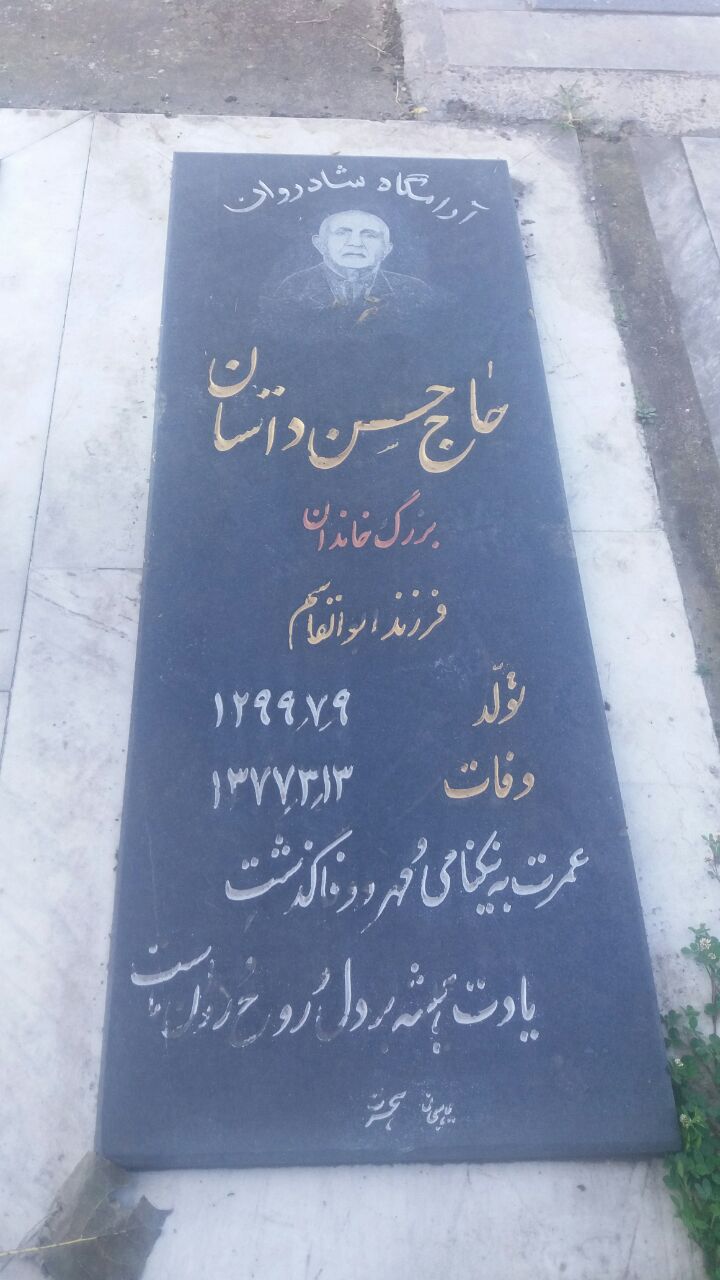 آرامگاه شادروان
حاج حسن داتسان
بزرگ خاندان
فرزند ابوالقاسم
تولّد ۱۲۹۹٫۷٫۹
وفات ۱۳۷۷٫۳٫۱۳
عمرت به نیکنامی و مهر و وفا گذشت
یادت همیشه بر دل و روح و روان ماست